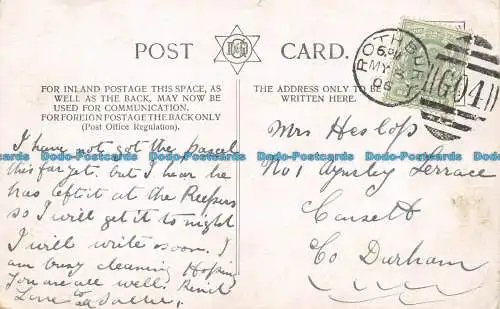 POST CARD.
FOR INLAND POSTAGE THIS SPACE, AS
WELL AS THE BACK, MAY NOW BE
USED FOR COMMUNICATION.
FOR FOREIGN POSTAGE THE BACK ONLY
(Post Office Regulation).
THE ADDRESS ONLY TO BE
WRITTEN HERE.
ROTHBURY
6 PM
MY
06
G04
I have not got the parcel
this far yet. but I hear he
has left it at the
so I will get it to night
I will write soon. I
am busy cleaning Hoping
you are all well.
Love to all Sallie.
Mrs Heslop
No 1 Aynsley Terrace
Consett
Co Durham
Postcards